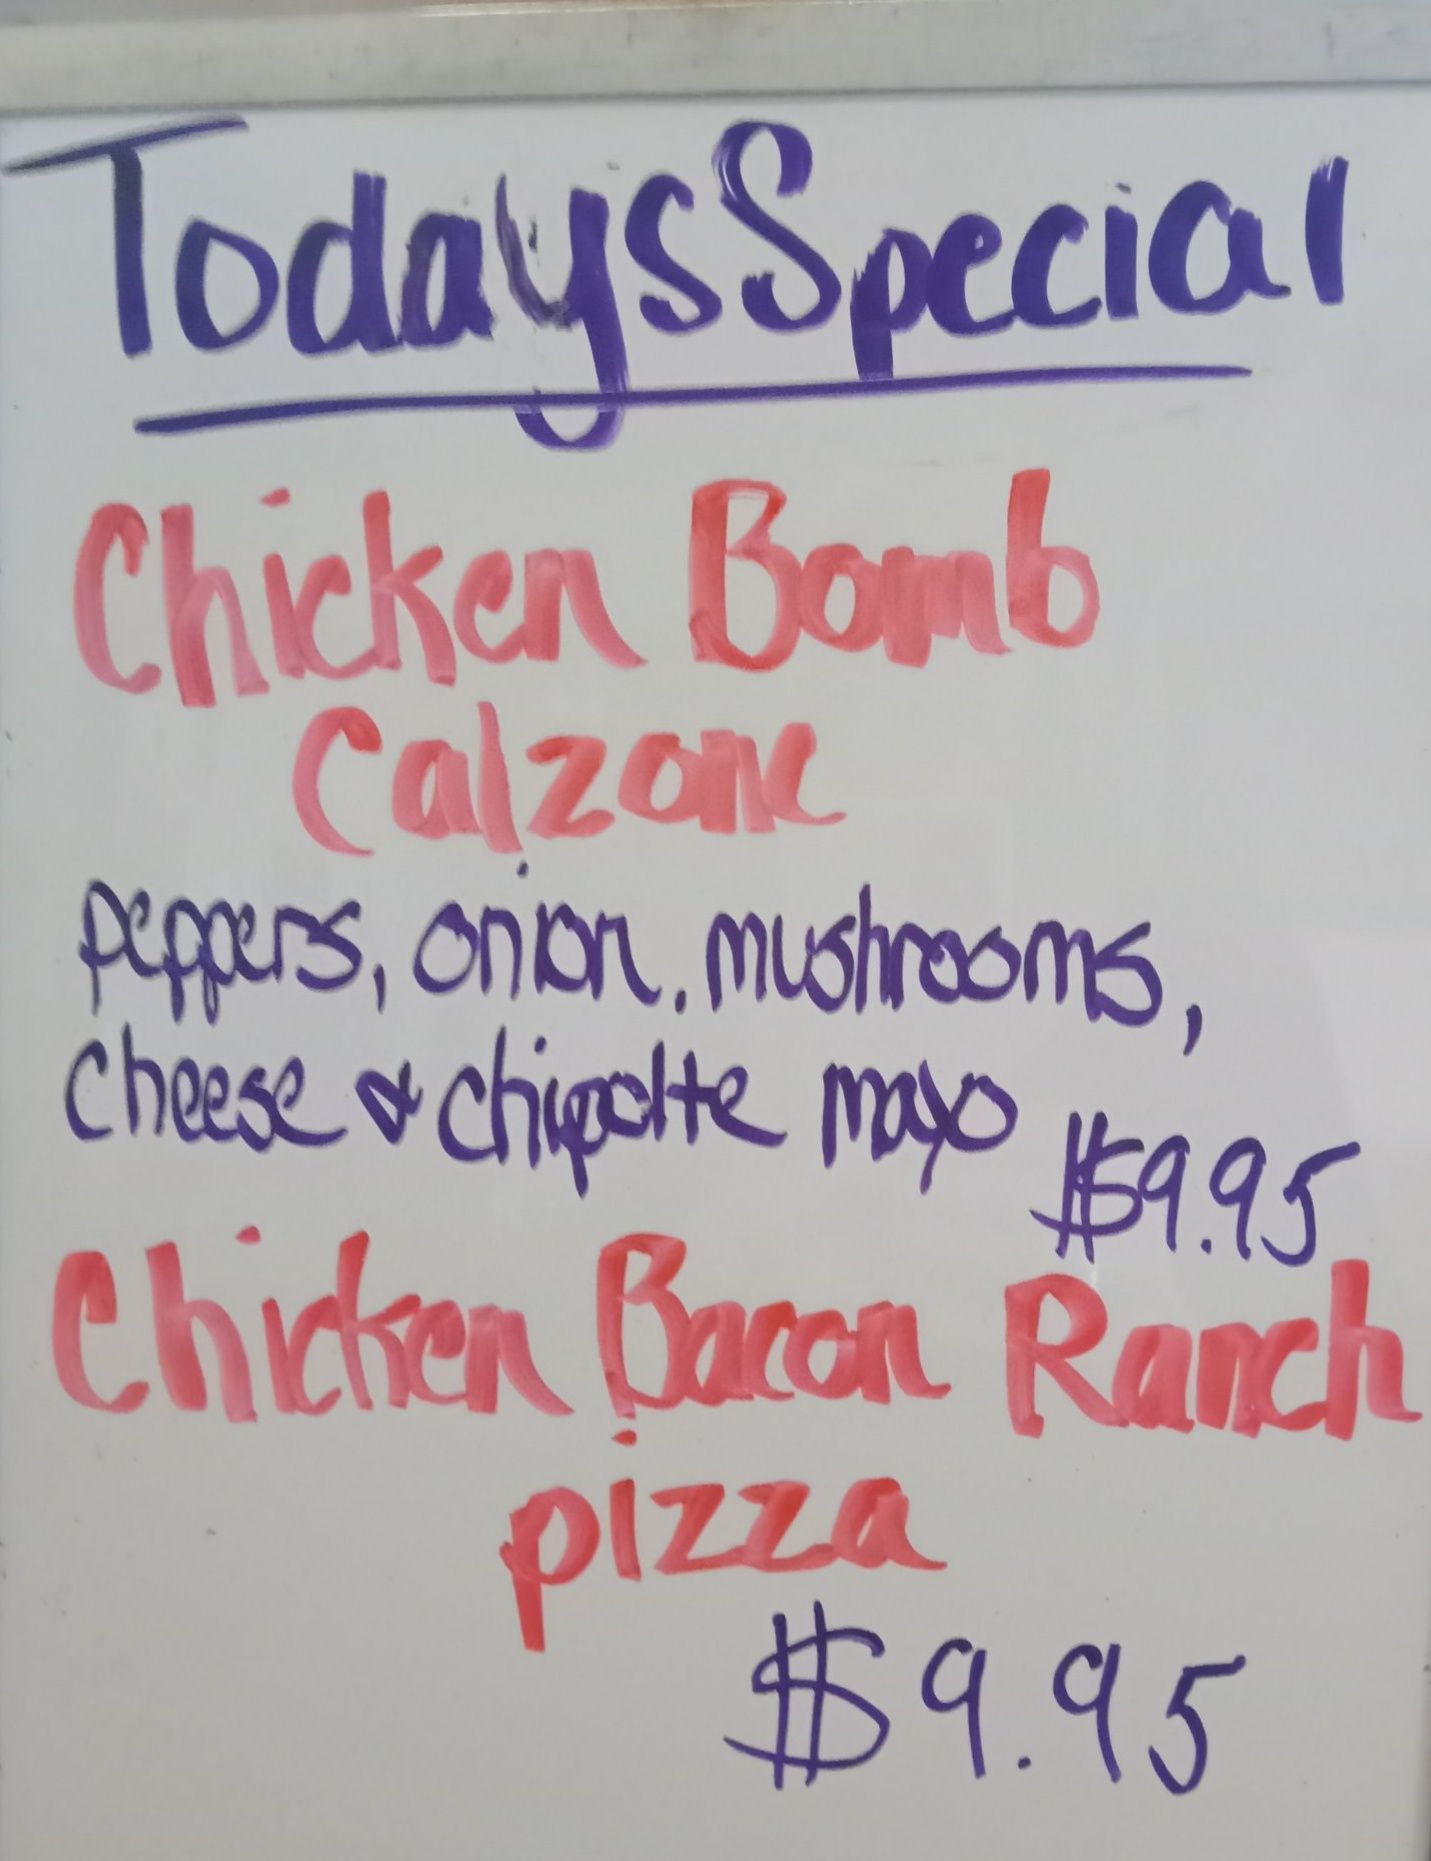 Todays Special
Chicken Bomb
Calzone
peppers, onion, mushrooms,
cheese & chipolte mayo
$9.95
Chicken Bacon Ranch
pizza
$9.95